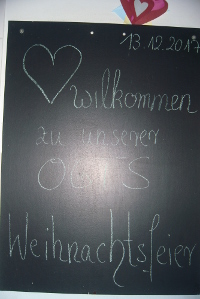 13.12.2017
willkommen
zu unserer
Weihnachtsfeier